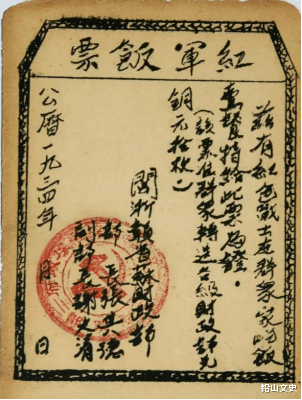 紅軍飯票
茲有紅色戰士在群衆家吃飯
壹餐特給此票為證。
(該票由群衆轉送各級財政部兑
銅元拾枚。)
閩浙贛省蘇財政部
部長張其德
副部長謝文清
公曆一九三四年 月 日
铅山文史